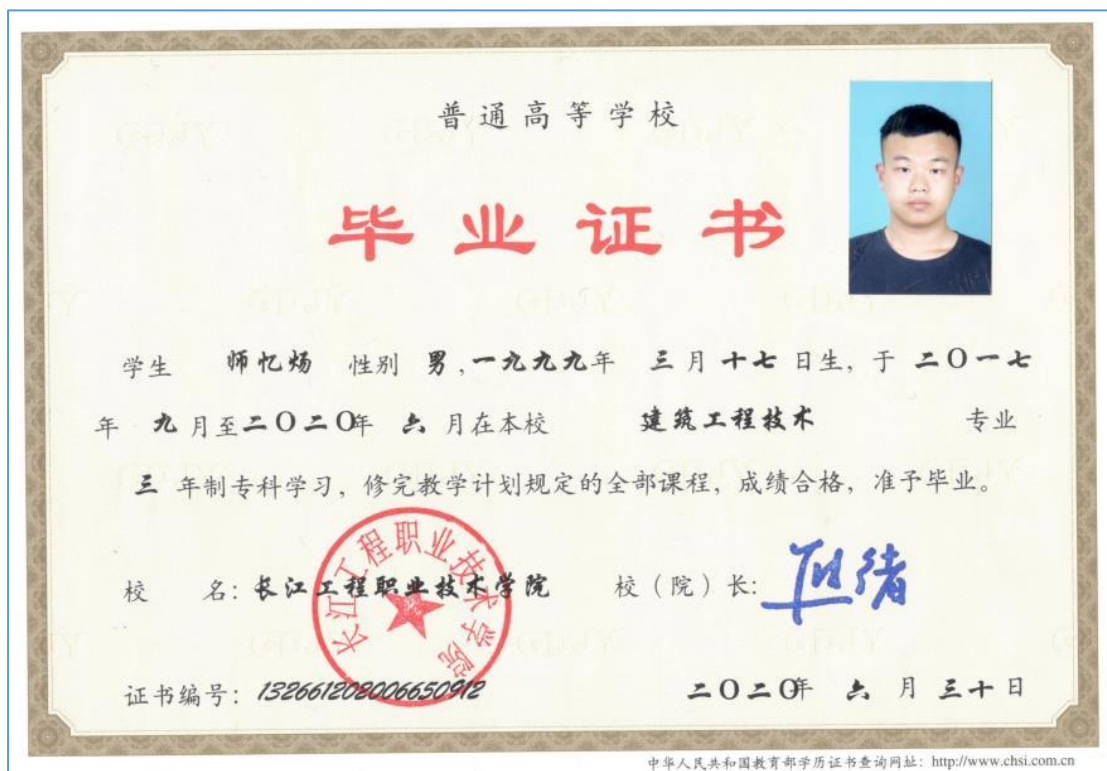 普通高等学校
毕业证书
学生 师忆炀 性别 男,一九九九年 三月十七日生,于 二〇一七
年 九月至二〇二〇年 六月在本校 建筑工程技术 专业
三年制专科学习,修完教学计划规定的全部课程,成绩合格,准予毕业。
长江工程职业技术学院
校 名:长江工程职业技术学院 校(院)长:
证书编号:132661202006650912 二〇二〇年 六月三十日
中华人民共和国教育部学历证书查询网址:http://www.chsi.com.cn